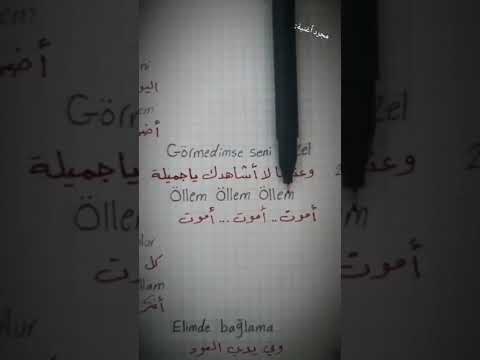 مجرد أغنية:
Görmedimse seni
لا أشاهدك ياجميلة
Öllem Öllem Öllem
أموت.. أموت... أموت
Elimde bağlama
وفي يدي العود